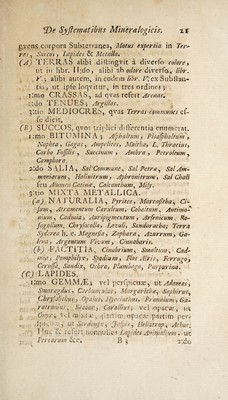 De Systematibus Mineralogicis. 21
guens corpora Subterranea, Motus expertia in Ter-
ras, Succos, Lapides & Metalla.
(A) TERRAS alibi distingvit à diverso colore,
ut in libr. II:do, alibi ab odore diverso, libr.
V; alibi autem, in eodem libr. V. ex Substan-
tia, ut ipse loqvitur, in tres ordines;
1:mo CRASSAS, ad qvas refert Arenas.
2:do TENUES; Argillas.
3:tio MEDIOCRES, quas Terras communes es-
se dicit,
(B) SUCCOS, quos triplici differentia enumerat.
1:mo BITUMINA; Asphaltum, Pissasphaltum,
Naphta, Gagas, Ampelites, Maltha, L. Thracius,
Carbo Fossilis, Succinum, Ambra, Petroleum,
Camphora.
2:do SALIA, Sal Commune, Sal Petræ, Sal Am-
moniacum, Halinitrum, Aphronitrum, Sal
Alumen Catina, Calcanthum, Misy.
3:tio MIXTA METALLICA.
(a) NATURALIA, Pyrites, Marcasitha,
Atramentum Cæruleum, Cobaltum, Antimo-
nium, Cadmia, Auripigmentum, Arsenicum
Chrysocolla, Lazuli, Sandaracha; Terra
h. e. Magnesia, Zaphara,
Argentum Vivum, Cinnabaris.
(b) FACTITIA, Cinabrium, Smaltum, Cad-
mia, Pompholyx, Spodium, Flos Æris, Ferrugo,
Cerussa, Sandix, Ochra, Plumbago, Purpurina.
(C) LAPIDES,
1:mo GEMMÆ; vel perspicuæ, ut Adamas,
Smaragdus, Carbunculus, Saphirus,
Chrysolithus, Opalus,
vel opacæ, ut
vel mixtæ,
ut Jaspis, Heliotrop,
Huc & refert nonnullos Lapides Animalium, ut
&c. B 3 2:do